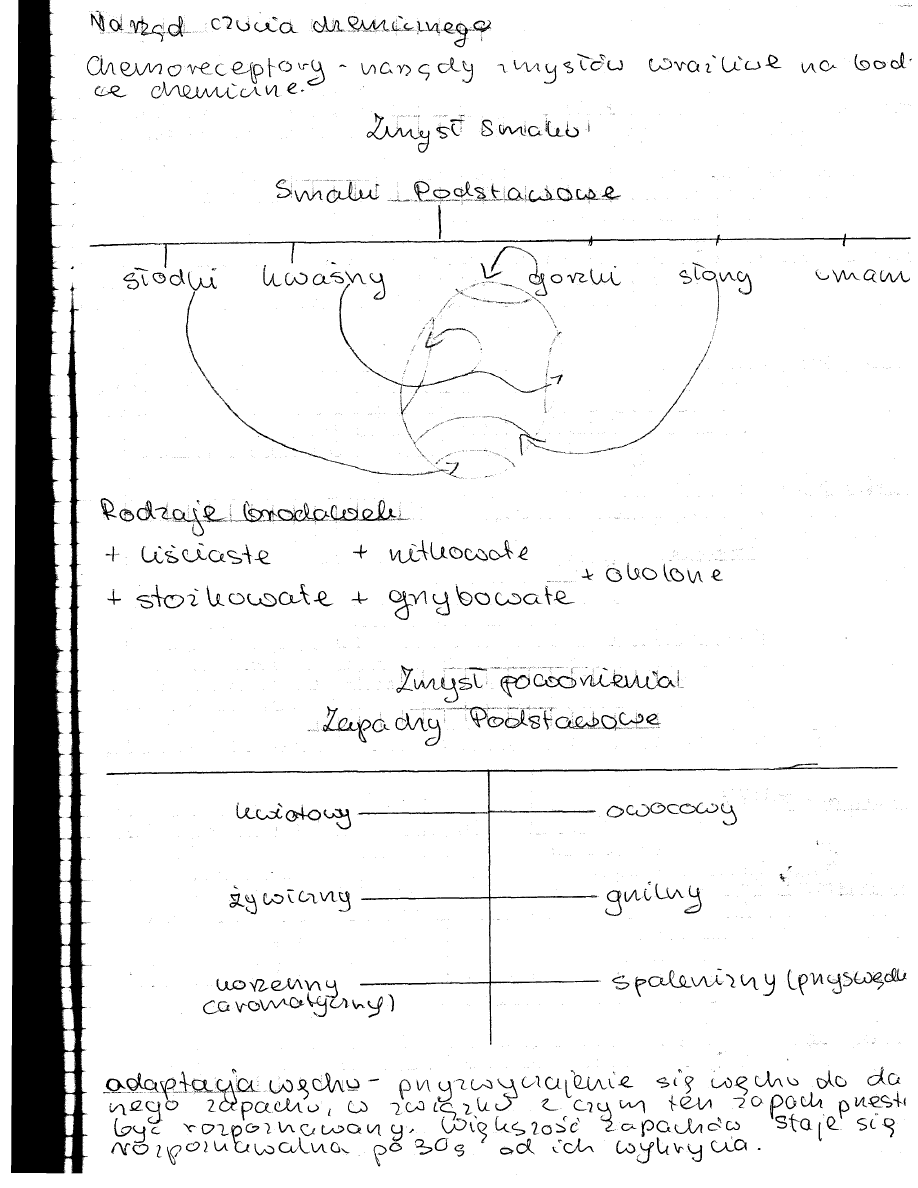 Narząd czucia chemicznego
Chemoreceptory - narządy zmysłów wrażliwe na bodź
ce chemiczne.
Zmysł smaku
Smaki Podstawowe
słodki kwaśny gorzki słony umam
Rodzaje brodawek
+ liściaste + nitkowate
+ okolone
+ stożkowate + grzybowate
Zmysł powonienia
Zapachy Podstawowe
kwiatowy owocowy
żywiczny gnilny
korzenny spalenizny (przyswędk
(aromatyczny)
adaptacja węchu - przyzwyczajenie się węchu do da
nego zapachu, w związku z czym ten zapach przest
być rozpoznawany. Większość zapachów staje się
rozpoznawalna po 30s od ich wykrycia.